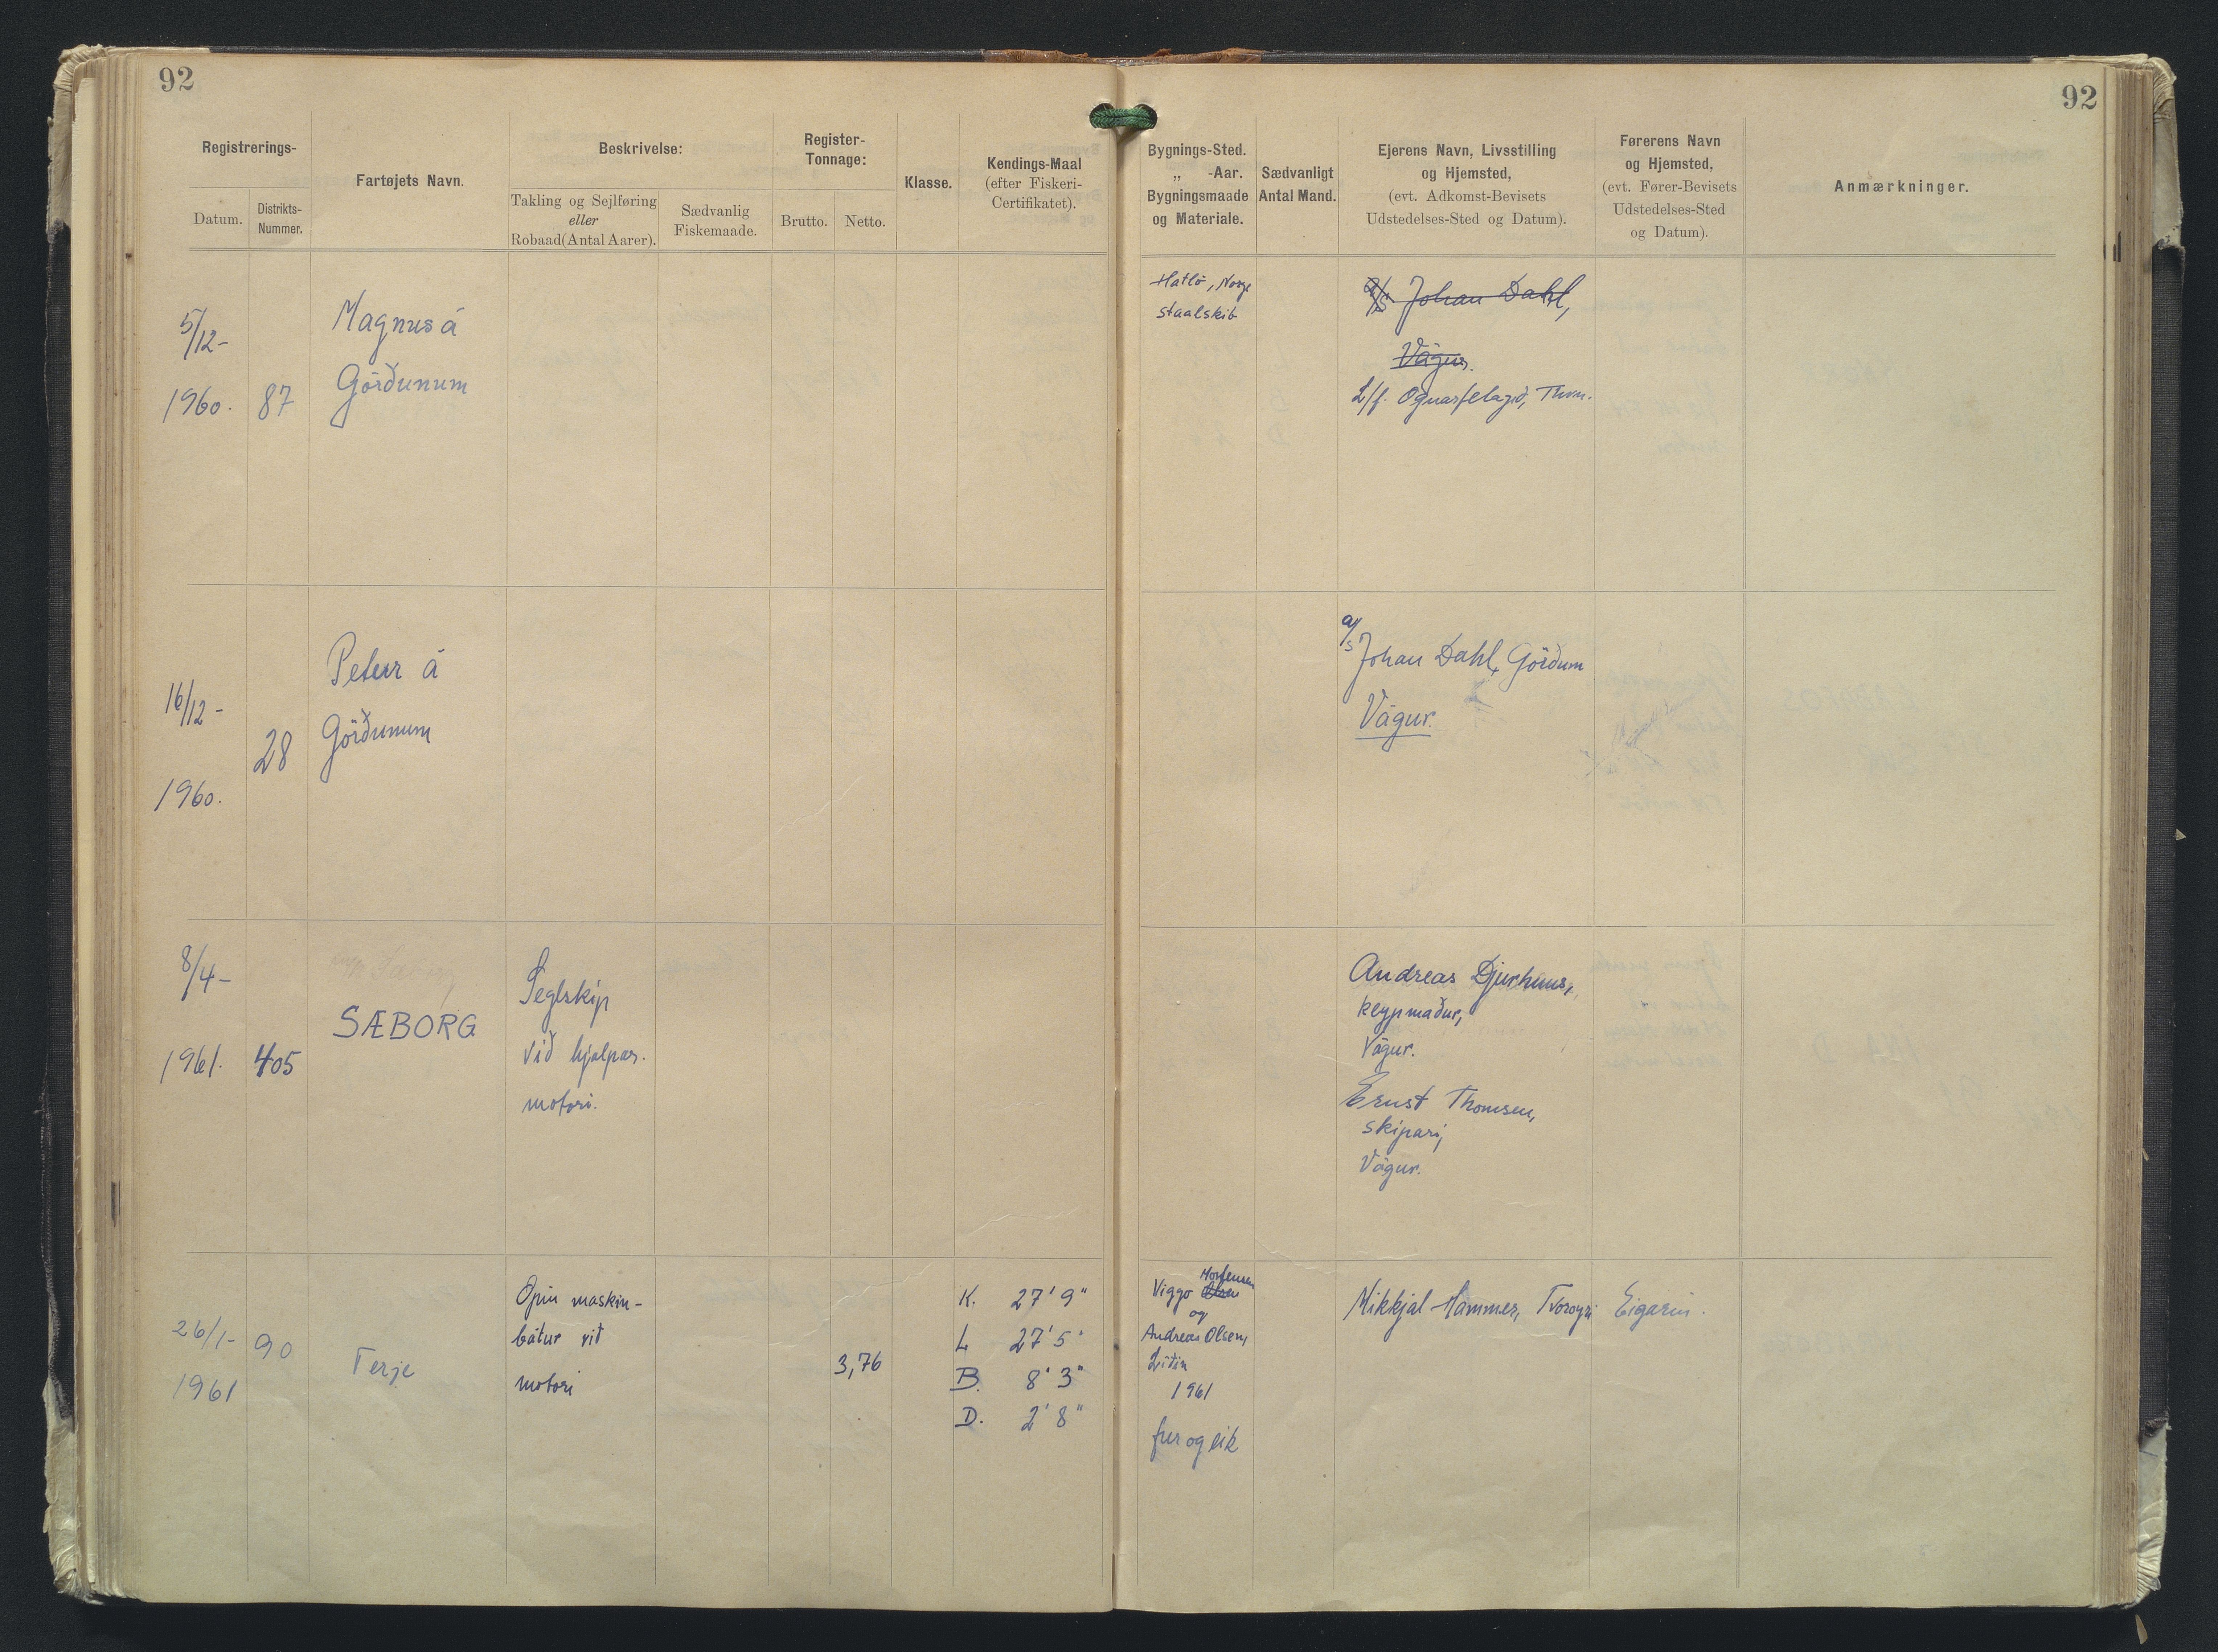 92
92
Registrerings-
Datum.
Distrikts-
Nummer.
Fartøjets Navn.
Beskrivelse:
Takling og Sejlføring
eller
Robaad (Antal Aarer).
Sædvanlig
Fiskemaade.
Register-
Tonnage:
Brutto.
Netto.
Klasse.
Kendings-Maal
(efter Fiskeri-
Certifikatet).
Bygnings-Sted.
„ -Aar.
Bygningsmaade
og Materiale.
Sædvanligt
Antal Mand.
Ejerens Navn, Livsstilling
og Hjemsted,
(evt. Adkomst-Bevisets
Udstedelses-Sted og Datum).
Førerens Navn
og Hjemsted,
(evt. Fører-Bevisets
Udstedelses-Sted
og Datum).
Anmærkninger.
5/12-
1960.
87
Magnus á
Görðunum
Hatlö, Norge
staalskib
a/s Johan Dahl,
Vágur.
L/f.
16/12-
1960.
28
Peturr á
Görðunum
a/s
Johan Dahl, Görðum
Vágur.
8/4-
1961.
405
SÆBORG
Seglskip
við hjálpar.
motori.
Andreas Djurhuus,
keypmaður,
Vágur.
Ernst Thomsen,
skipari,
Vágur.
26/1-
1961
90
Terje
Opin maskin-
bátur við
motori
3,76
K. 27' 9"
L 27' 5"
B. 8' 3"
D. 2' 8"
Mortensen
Viggo Olsen
og
Andreas Olsen,
Líðin
1961
fur og eik
Mikkjal Hammer, Tvøroyri
Eigarin.